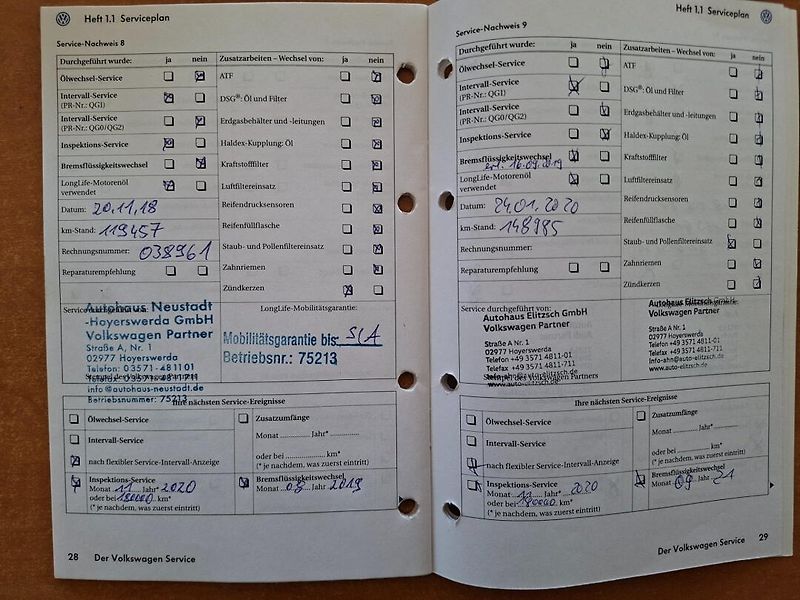 Heft 1.1 Serviceplan
Service-Nachweis 8
Durchgeführt wurde: ja nein
Ölwechsel-Service
Intervall-Service
(PR-Nr.: QG1)
Intervall-Service
(PR-Nr.: QG0/QG2)
Inspektions-Service
Bremsflüssigkeitswechsel
LongLife-Motorenöl
verwendet
Datum: 20.11.18
km-Stand: 119457
Rechnungsnummer: 038961
Reparaturempfehlung
Zusatzarbeiten - Wechsel von: ja nein
ATF
DSG®: Öl und Filter
Erdgasbehälter und -leitungen
Haldex-Kupplung: Öl
Kraftstofffilter
Luftfiltereinsatz
Reifendrucksensoren
Reifenfüllflasche
Staub- und Pollenfiltereinsatz
Zahnriemen
Zündkerzen
Autohaus Neustadt
-Hoyerswerda GmbH
Volkswagen Partner
Straße A, Nr. 1
02977 Hoyerswerda
Telefon: 03571-481101
Telefax: 03571-4811711
info@autohaus-neustadt.de
Betriebsnummer: 75213
LongLife-Mobilitätsgarantie:
Mobilitätsgarantie bis: SIA
Betriebsnr.: 75213
Ihre nächsten Service-Ereignisse
Ölwechsel-Service
Intervall-Service
nach flexibler Service-Intervall-Anzeige
Inspektions-Service
Monat 11 Jahr* 2020
oder bei 180000 km*
(* je nachdem, was zuerst eintritt)
Zusatzumfänge
Monat ............ Jahr* ................
oder bei ................ km*
(* je nachdem, was zuerst eintritt)
Bremsflüssigkeitswechsel
Monat 08 Jahr 2019
28 Der Volkswagen Service
Heft 1.1 Serviceplan
Service-Nachweis 9
Durchgeführt wurde: ja nein
Ölwechsel-Service
Intervall-Service
(PR-Nr.: QG1)
Intervall-Service
(PR-Nr.: QG0/QG2)
Inspektions-Service
Bremsflüssigkeitswechsel
erl. 16.09.2019
LongLife-Motorenöl
verwendet
Datum: 24.01.2020
km-Stand: 148985
Rechnungsnummer:
Reparaturempfehlung
Zusatzarbeiten - Wechsel von: ja nein
ATF
DSG®: Öl und Filter
Erdgasbehälter und -leitungen
Haldex-Kupplung: Öl
Kraftstofffilter
Luftfiltereinsatz
Reifendrucksensoren
Reifenfüllflasche
Staub- und Pollenfiltereinsatz
Zahnriemen
Zündkerzen
Service durchgeführt von:
Autohaus Elitzsch GmbH
Volkswagen Partner
Straße A Nr. 1
02977 Hoyerswerda
Telefon +49 3571 4811-01
Telefax +49 3571 4811-711
www.auto-elitzsch.de
Autohaus Elitzsch GmbH
Volkswagen Partner
Straße A Nr. 1
02977 Hoyerswerda
Telefon +49 3571 4811-01
Telefax +49 3571 4811-711
info-ahn@auto-elitzsch.de
www.auto-elitzsch.de
Ihre nächsten Service-Ereignisse
Ölwechsel-Service
Intervall-Service
nach flexibler Service-Intervall-Anzeige
Inspektions-Service
Monat 11 Jahr* 2020
oder bei 180000 km*
(* je nachdem, was zuerst eintritt)
Zusatzumfänge
Monat ............ Jahr* ................
oder bei ................ km*
(* je nachdem, was zuerst eintritt)
Bremsflüssigkeitswechsel
Monat 09 Jahr 21
Der Volkswagen Service 29